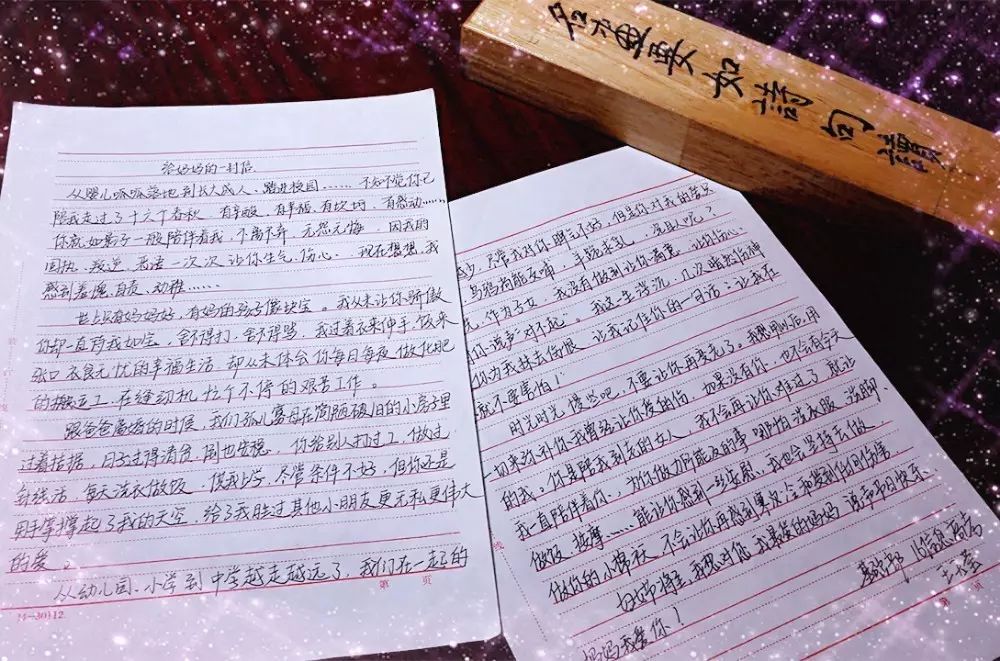 给妈妈的一封信
从婴儿呱呱落地到长大成人、踏进校园……不知不觉你已
陪我走过了十六个春秋 有辛酸、有幸福、有坎坷、有感动……
你就如影子一般陪伴着我,不离不弃、无怨无悔 因我的
固执、叛逆、无法一次次让你生气、伤心 现在想想,我
感到羞愧、自责、幼稚……
世上只有妈妈好,有妈的孩子像块宝。我从未让你骄傲
你却一直待我如宝。舍不得打、舍不得骂,我过着衣来伸手、饭来
张口、衣食无忧的幸福生活,却从未体会你每日每夜、做化肥
的搬运工,在缝纫机 忙个不停的艰苦工作。
跟爸爸离婚的时候,我们孤儿寡母在简陋破旧的小房子里
过着拮据,日子过得清贫、倒也安稳。你给别人打过工、做过
针线活、每天洗衣做饭、供我上学,尽管条件不好,但你还是
用手掌撑起了我的天空,给了我胜过其他小朋友更无私更伟大
的爱。
从幼儿园、小学到中学越走越远了,我们在一起的
14-30112
第 页
减少,尽管我对你脾气不好,但是你对我的爱只
乌鸦尚能反哺,羊跪求乳,况且人呢?
作为子女,我没有做到让你满意,让你伤心
们说声"对不起"。我这一生浮沉,几次
你为我抹去伤痕,让我记住你的一句话:让我在
就不要害怕!
时光时光慢些吧,不要让你再变老了。我想用以后,用
如果没有你,也不会有今天
的我。你是陪我到老的女人,我不会再让你难过了,就让
我一直陪伴着你,为你做力所能及的事,哪怕洗衣服、洗脚、
做饭、按摩……能让你感到一丝安慰,我也会坚持去做
做你的小棉袄,不会让你再感到寒冷和受到任何伤害
母亲节将至,我想对您,我最爱的妈妈,说声节日快乐
妈妈我爱你!
第 页
如詩